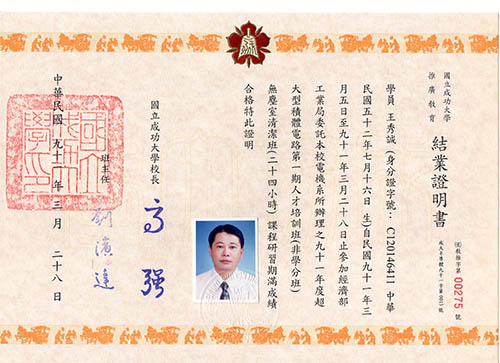 國立成功大學
推廣教育
結業證明書
教推字第 00275 號
學員 王秀誠(身分證字號:C120146411 中華
民國五十二年七月十六日 生)自民國九十一年三
月五日至九十一年三月二十八日止參加經濟部
工業局委託本校電機系所辦理之九十一年度超
大型積體電路第一期人才培訓班(非學分班)
無塵室清潔班(二十四小時)課程研習期滿成績
合格特此證明
國立成功大學校長 高強
班主任 劉濱達
中華民國 九十一年 三月 二十八日